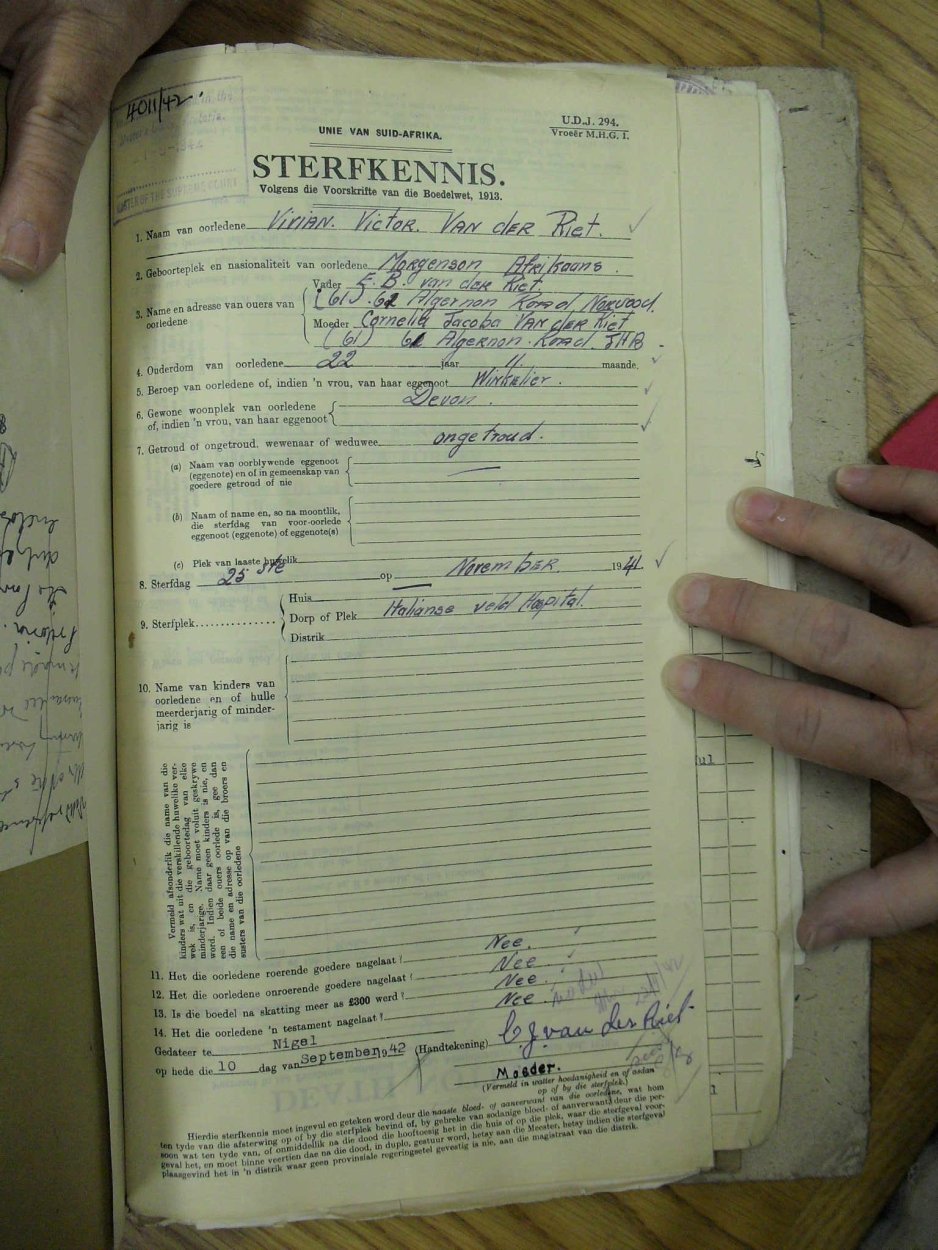 4011/42
MASTER OF THE SUPREME COURT
U.D.J. 294.
Vroeër M.H.G. I.
UNIE VAN SUID-AFRIKA.
STERFKENNIS.
Volgens die Voorskrifte van die Boedelwet, 1913.
1. Naam van oorledene Vivian. Victor. Van der Riet.
2. Geboorteplek en nasionaliteit van oorledene Morgenson Afrikaans.
3. Name en adresse van ouers van oorledene
Vader E. B. van der Riet
(61) 61 Algernon Road Norwood.
Moeder Cornelia Jacoba Van der Riet
(61) 61 Algernon Road. JHB.
4. Ouderdom van oorledene 22 jaar 11 maande.
5. Beroep van oorledene of, indien 'n vrou, van haar eggenoot Winkelier.
6. Gewone woonplek van oorledene
of, indien 'n vrou, van haar eggenoot
Devon.
7. Getroud of ongetroud, wewenaar of weduwee ongetroud.
(a) Naam van oorblywende eggenoot
(eggenote) en of in gemeenskap van
goedere getroud of nie
(b) Naam of name en, so na moontlik,
die sterfdag van voor-oorlede
eggenoot (eggenote) of eggenote(s)
(c) Plek van laaste huwelik
8. Sterfdag 25 ste op November. 1941
9. Sterfplek
Huis
Dorp of Plek Italianse veld Hospital.
Distrik
10. Name van kinders van
oorledene en of hulle
meerderjarig of minder-
jarig is
Vermeld afsonderlik die name van die
kinders wat uit die verskillende huwelike ver-
wek is, en die geboortedag van elke
minderjarige. Name moet voluit geskrywe
word. Indien daar geen kinders is nie, en
een of beide ouers oorlede is, gee dan
die name en adresse op van die broers en
susters van die oorledene
11. Het die oorledene roerende goedere nagelaat? Nee.
12. Het die oorledene onroerende goedere nagelaat? Nee
13. Is die boedel na skatting meer as £300 werd? Nee.
14. Het die oorledene 'n testament nagelaat? Nee.
Gedateer te Nigel
op hede die 10 dag van September, 1942 (Handtekening) C J. van der Riet
Moeder.
(Vermeld in watter hoedanigheid en of aldan
op of by die sterfplek.)
Hierdie sterfkennis moet ingevul en geteken word deur die naaste bloed- of aanverwant van die oorledene, wat hom
ten tyde van die afsterwing op of by die sterfplek bevind of, by gebreke van sodanige bloed- of aanverwant, deur die per-
soon wat ten tyde van, of onmiddellik na die dood die hooftoesig het in die huis of op die plek, waar die sterfgeval voor-
geval het, en moet binne veertien dae na die dood, in duplo, gestuur word, hetsy aan die Meester, hetsy indien die sterfgeval
plaasgevind het in 'n distrik waar geen provinsiale regeringsetel gevestig is nie, aan die magistraat van die distrik.